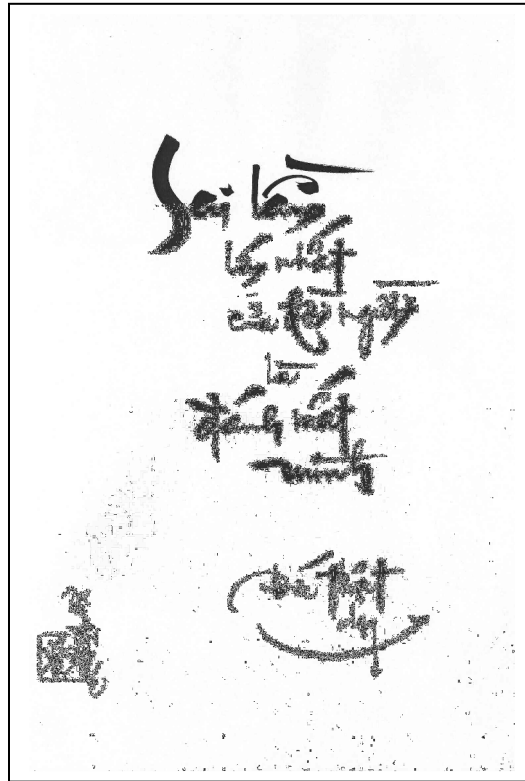 Sai lầm
lớn nhất
của đời người
là
đánh mất
mình
phật
dạy